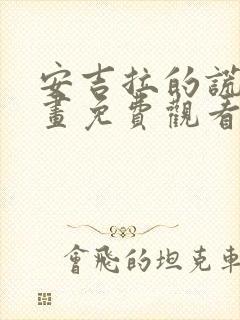 安吉拉的謊
畫免費觀看
會飛的坦克車